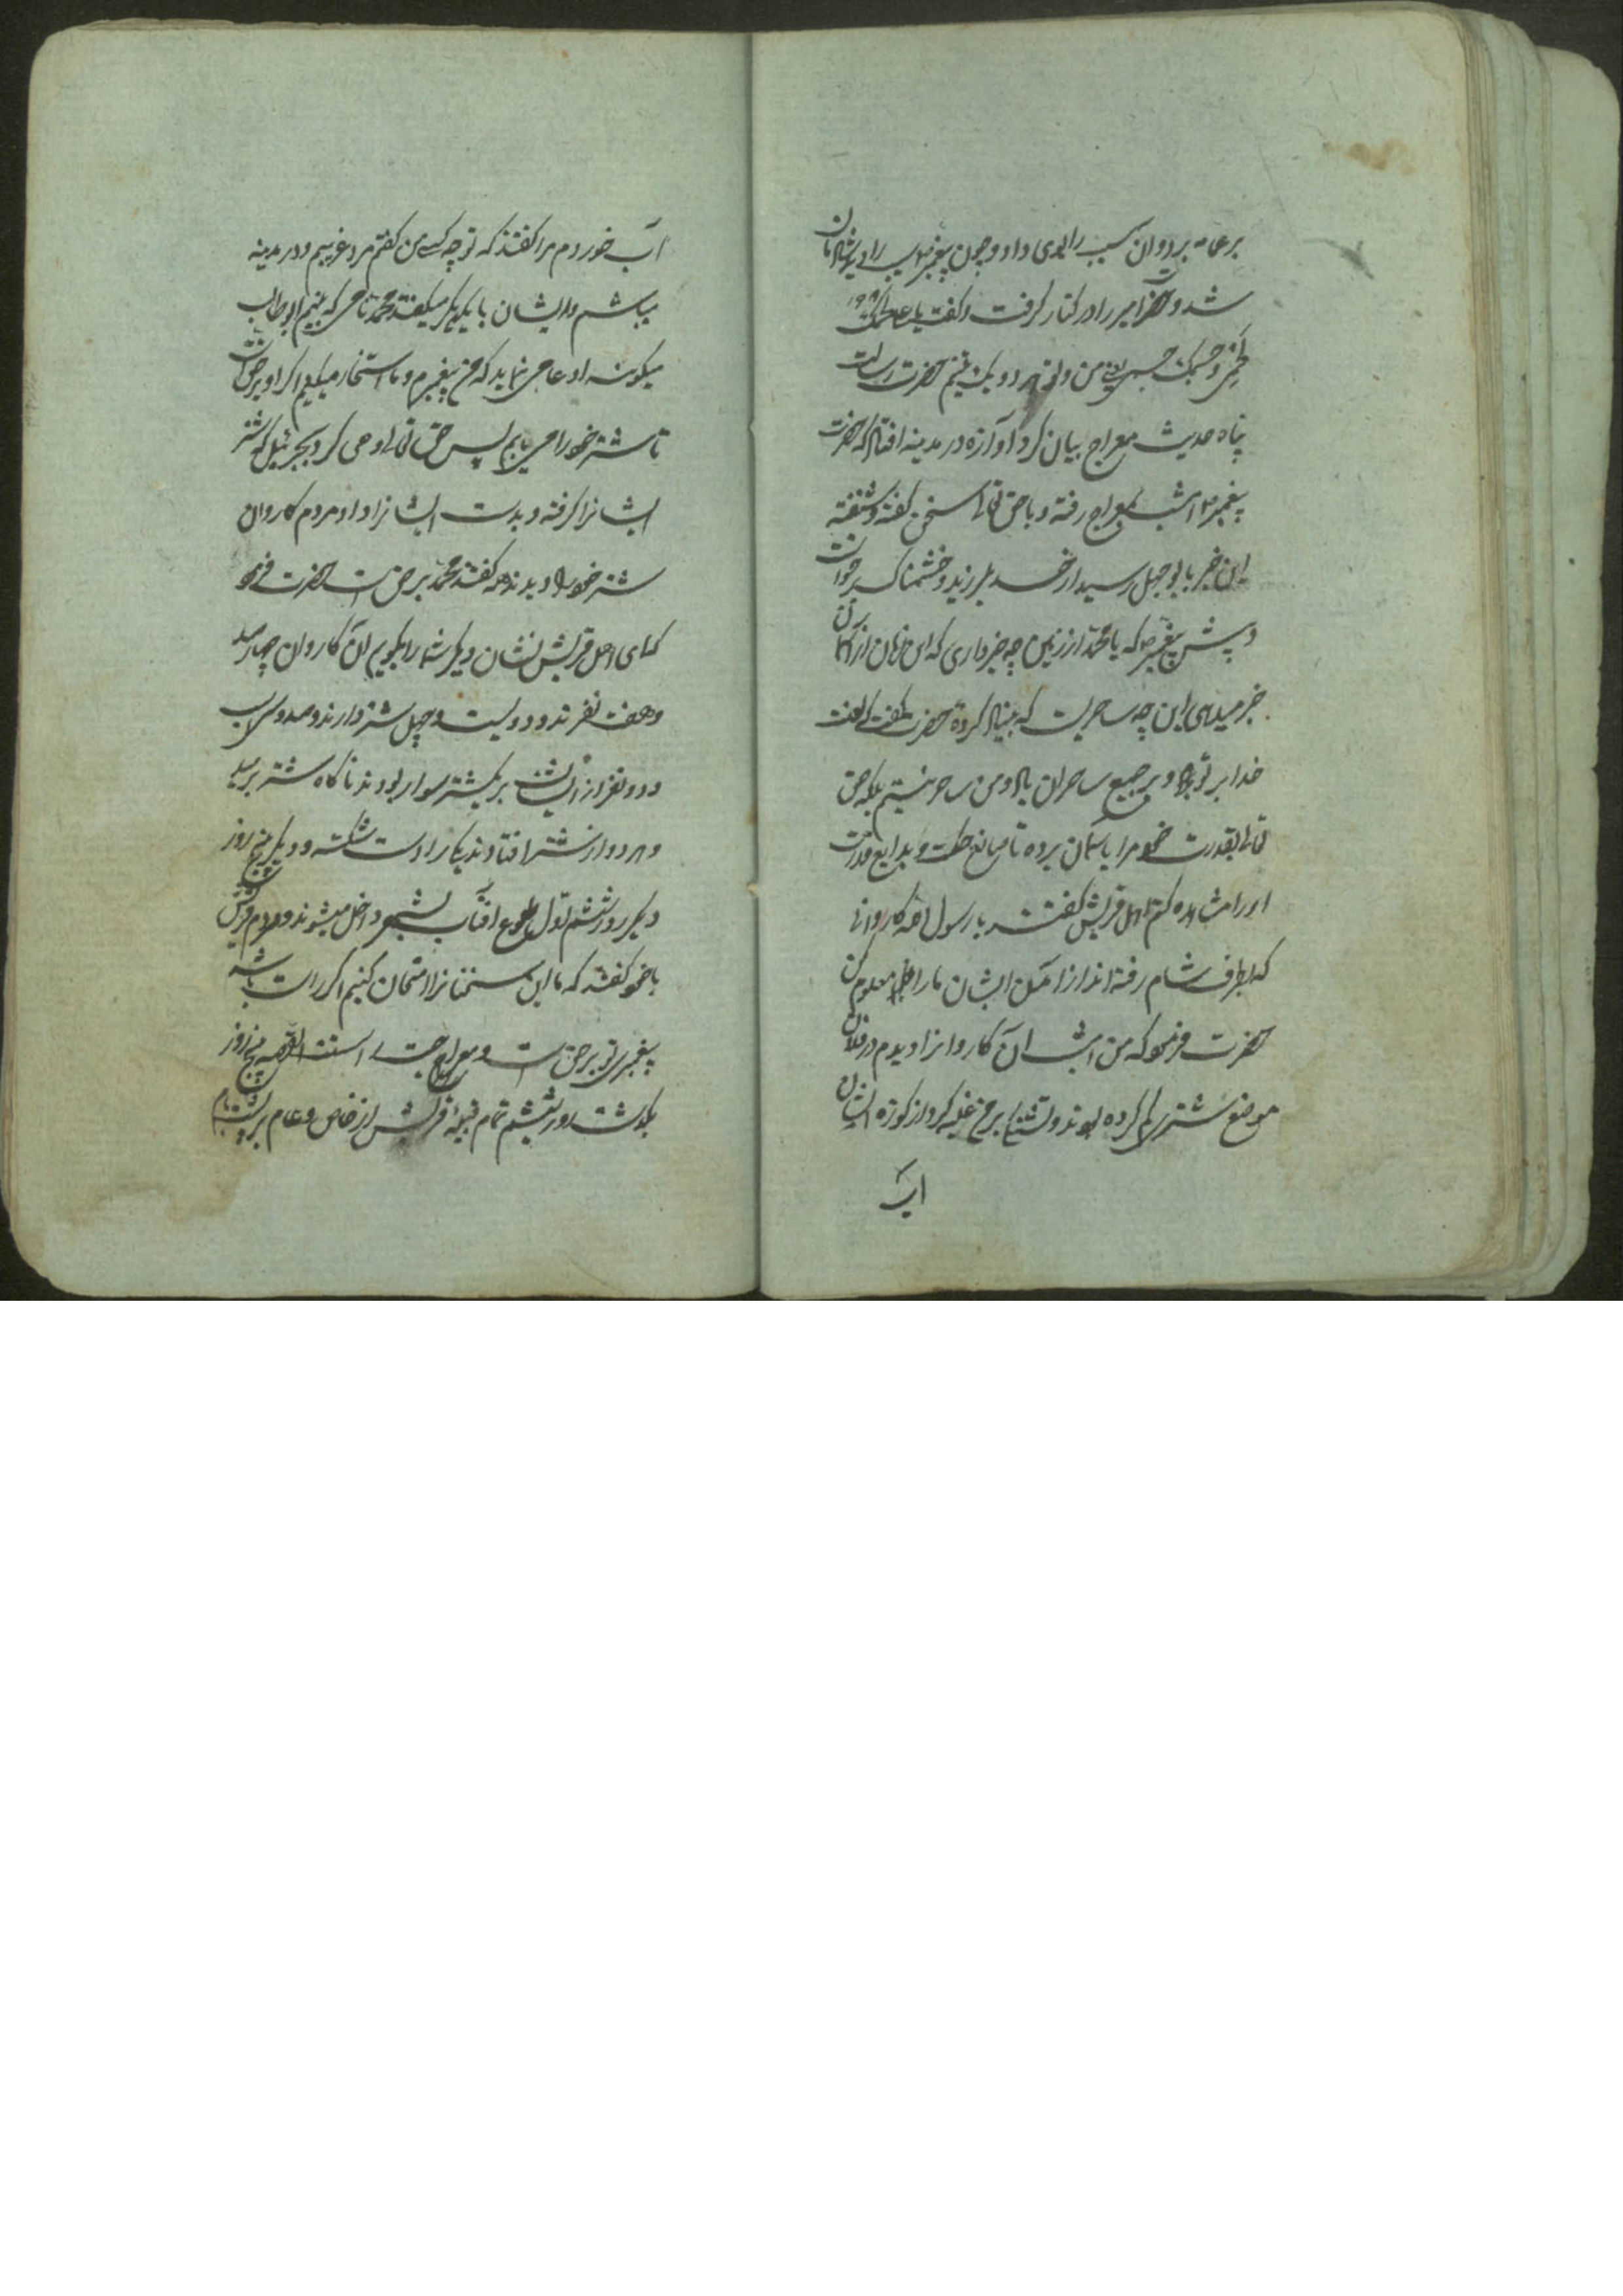 برعامه برد و ان سیب را بوی داد و چون پیغمبر سیب را دید شادمان
شد و حضرت امیر را در کنار گرفت و گفت یا علی لحمک
لحمی و جسمک جسمی من و تو هر دو یک تنیم حضرت رسالت
پناه حدیث معراج بیان کرد آوازه در مدینه افتاد که حضرت
پیغمبر امشب بمعراج رفته و با حق تعالی سخن گفته و شنفته
این خبر بابوجهل رسید از حسد بلرزید و خشمناک برخواست
و پیش پیغمبر که یا محمد از زمین چه خبر داری که این زمان از آسمان
خبر میدهی این چه ساحریست که بنیاد کرده حضرت گفت که لعنت
خدا بر تو باد و بر جمیع ساحران باد و من ساحر نیستم بلکه حق
تعالی بقدرت خود مرا باسمان برده تا صانع حکمت و بدایع قدرت
او را مشاهده کنم اهل قریش گفتند یا رسول الله کاروانی
که بطرف شام رفته اند از آمدن ایشان ما را معلوم کن
حضرت فرمود که من امشب آن کاروانرا دیدم در فلان
موضع شتری گم کرده بودند و تشنگی بر من غلبه کرد از کوزه ایشان
آب
آب خوردم مرا گفتند که تو چه کسی من گفتم مرد غریبم و در مدینه
میباشم و ایشان با یکدیگر میگفتند محمد نامی که یتیم ابوطالب
میگویند ادعا می نماید که من پیغمبرم و ما استخاره میکنیم اگر او بر حق است
تا شتر خود را می یابیم پس حق تعالی وحی کرد بجبرئیل که شتر
ایشانرا گرفته و بدست ایشانرا داد مردم کاروان
شتر خود را دیدند همه گفتند محمد بر حق است حضرت فرمود
که ای اهل قریش نشان دیگر شما را بگویم آن کاروان چهار صد
و هفت نفرند و دویست و چهل شتر دارند و صد و سی اسب
و دو نفر از ایشان بر یک شتر سوار بودند ناگاه شتر برمید
و هر دو از شتر افتادند یکی را دست شکسته و دیگر پنج روز
دیگر روز ششم اول طلوع آفتاب بشهر داخل میشوند و مردم قریش
با خود گفتند که ما این سخنانرا امتحان کنیم اگر راست باشد
پیغمبری تو بر حق است و معراج حق است القصه پنج روز
بگذشت روز ششم تمام قبیله قریش از خاص و عام بر پشت بام